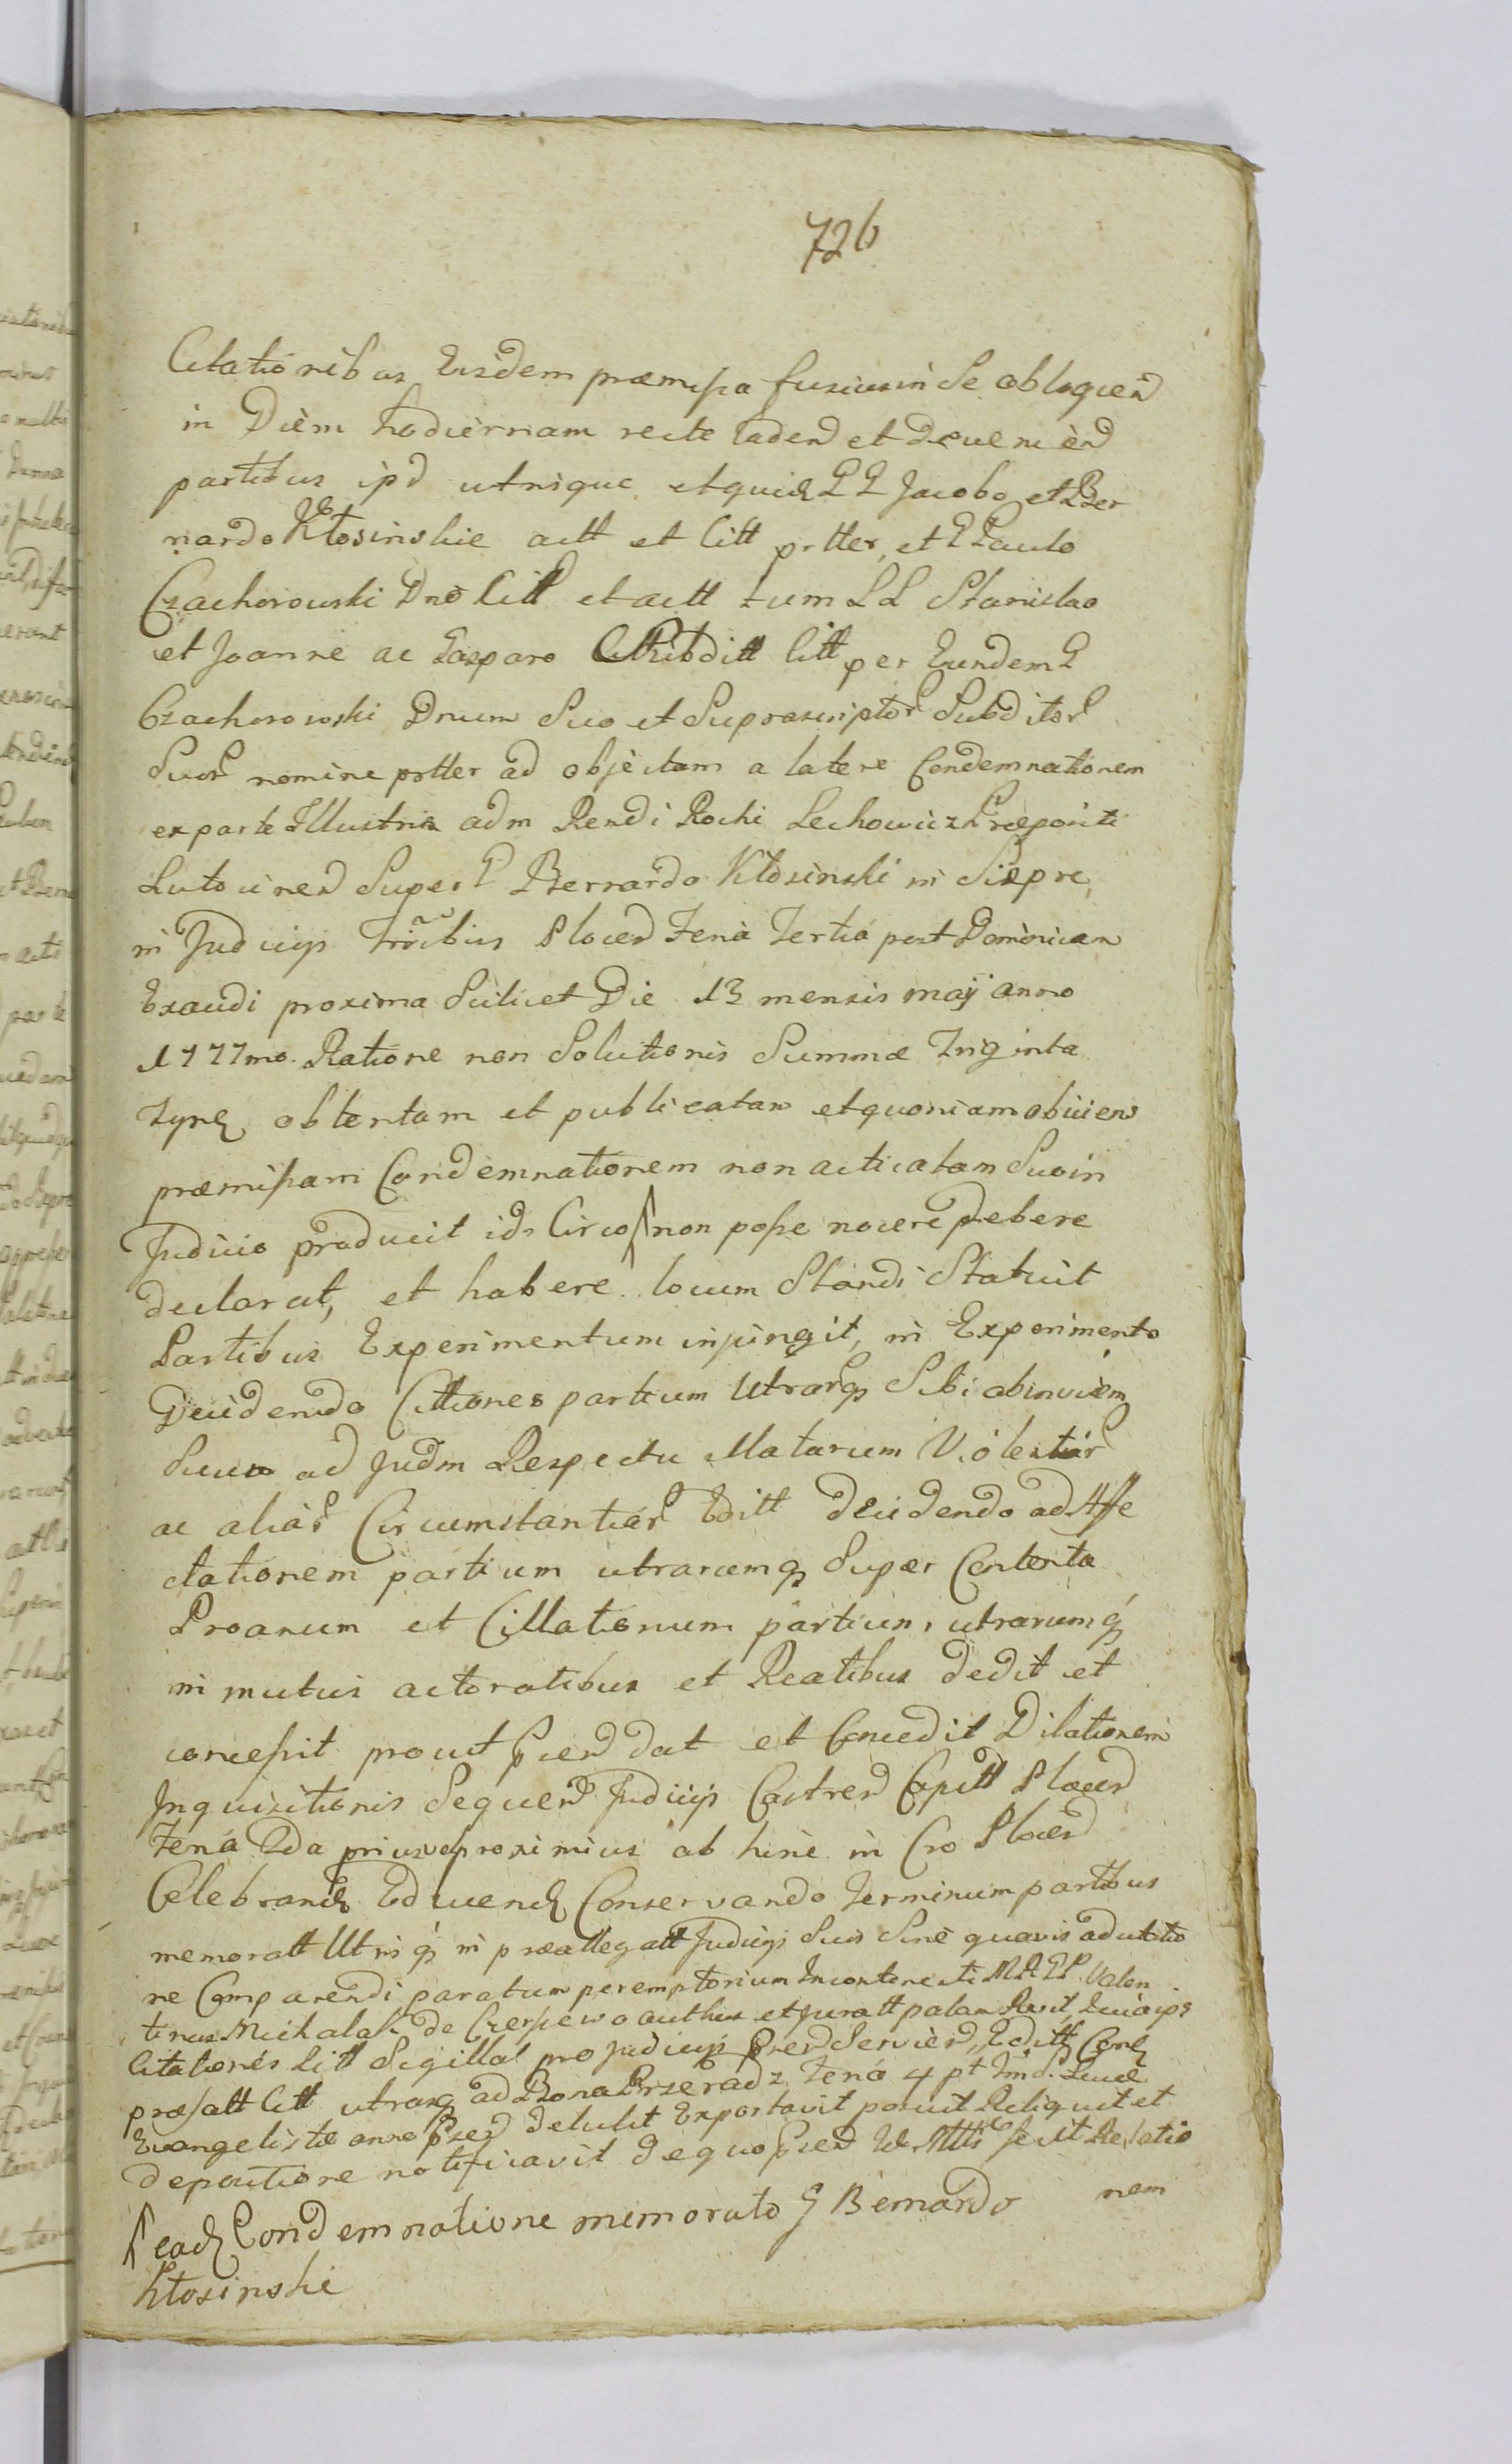 726
Citationibus Eisdem præmissa fusius in Se obloquen
in Diem hodiernam recte caden et devenien
partibus ipd utrisque et quid GG Jacobo et Ber
nardo Kłosinskie actt et Citt prtter, et G Paulo
Czachorowski Dno Citt et actt tum LL Stanislao
et Joanne ac Gasparo Subditt Citt per Eundem G
Czachorowski Dnum Suo et Suprascriptor Subditor
Suor nomine prtter ad objectam a latere Condemnationem
ex parte Illustris adm Rendi Rochi Lechowicz Præpositi
Lutocinen Super G Bernardo Kłosinski in Siepre,
in Judiciis Plocen Feria Tertia post Dominicam
Exaudi proxima Scilicet Die 13 mensis maij anno
1777mo. Ratione non Solutionis Summæ Triginta
Tynf obtentam et publicatam et quoniam obiicien
præmissam Condemnationem non acticatam Suo in
Judicio producit id Circo non posse nocere debere
declarat, et habere locum Standi Statuit
Partibus Experimentum injungit, in Experimento
Decidendo Cittiones partium Utrarq Sibi abinvicem
Suum ad Judm Respectu illatarum Violentiar
ac aliar Circumstantiar Editt decidendo ad Affe
ctationem partium utrarumq Super Contenta
Proanum et Cittationum partium utrarumq
in mutuis actoratibus et Reatibus dedit et
concessit prout pñen dat et Concedit Dilationem
Inquisitionis Sequen Judiciis Castren Capitt Plocen
Feria 2da prius vel proximius ab hinc in Cro Plocen
Celebrand Educend Conservando Terminum partibus
memoratt Utrisq in præallegatt Judiciis Suis Sine quavis ad citatio
ne Comparendi paratum peremptorium Incontenenti M. R. G. P. Valen
tinus Michalak de Czerniewo authus et juratt palam Recit, Quia ips
Citationes Litt Sigillat pro Judiciis Pñen Servien, Editt Cone
præfatt Citt utrasq ad Bona Przeradz Feria 4 pt fm S. Lucæ
Evangelistæ anno Pñen detulit Exportavit posuit Reliquit et
depositione notificavit de quo pñen fecit Relatio
nem
ead Condemnatione memorato G Bernardo
Kłosinski